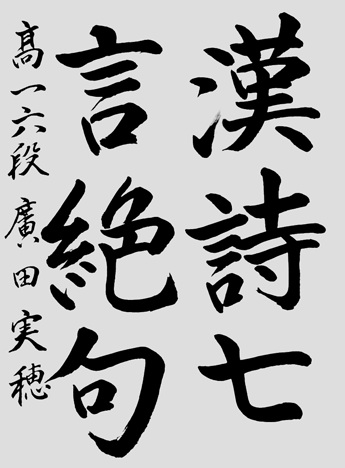 漢詩七
言絶句
高一六段廣田実穂